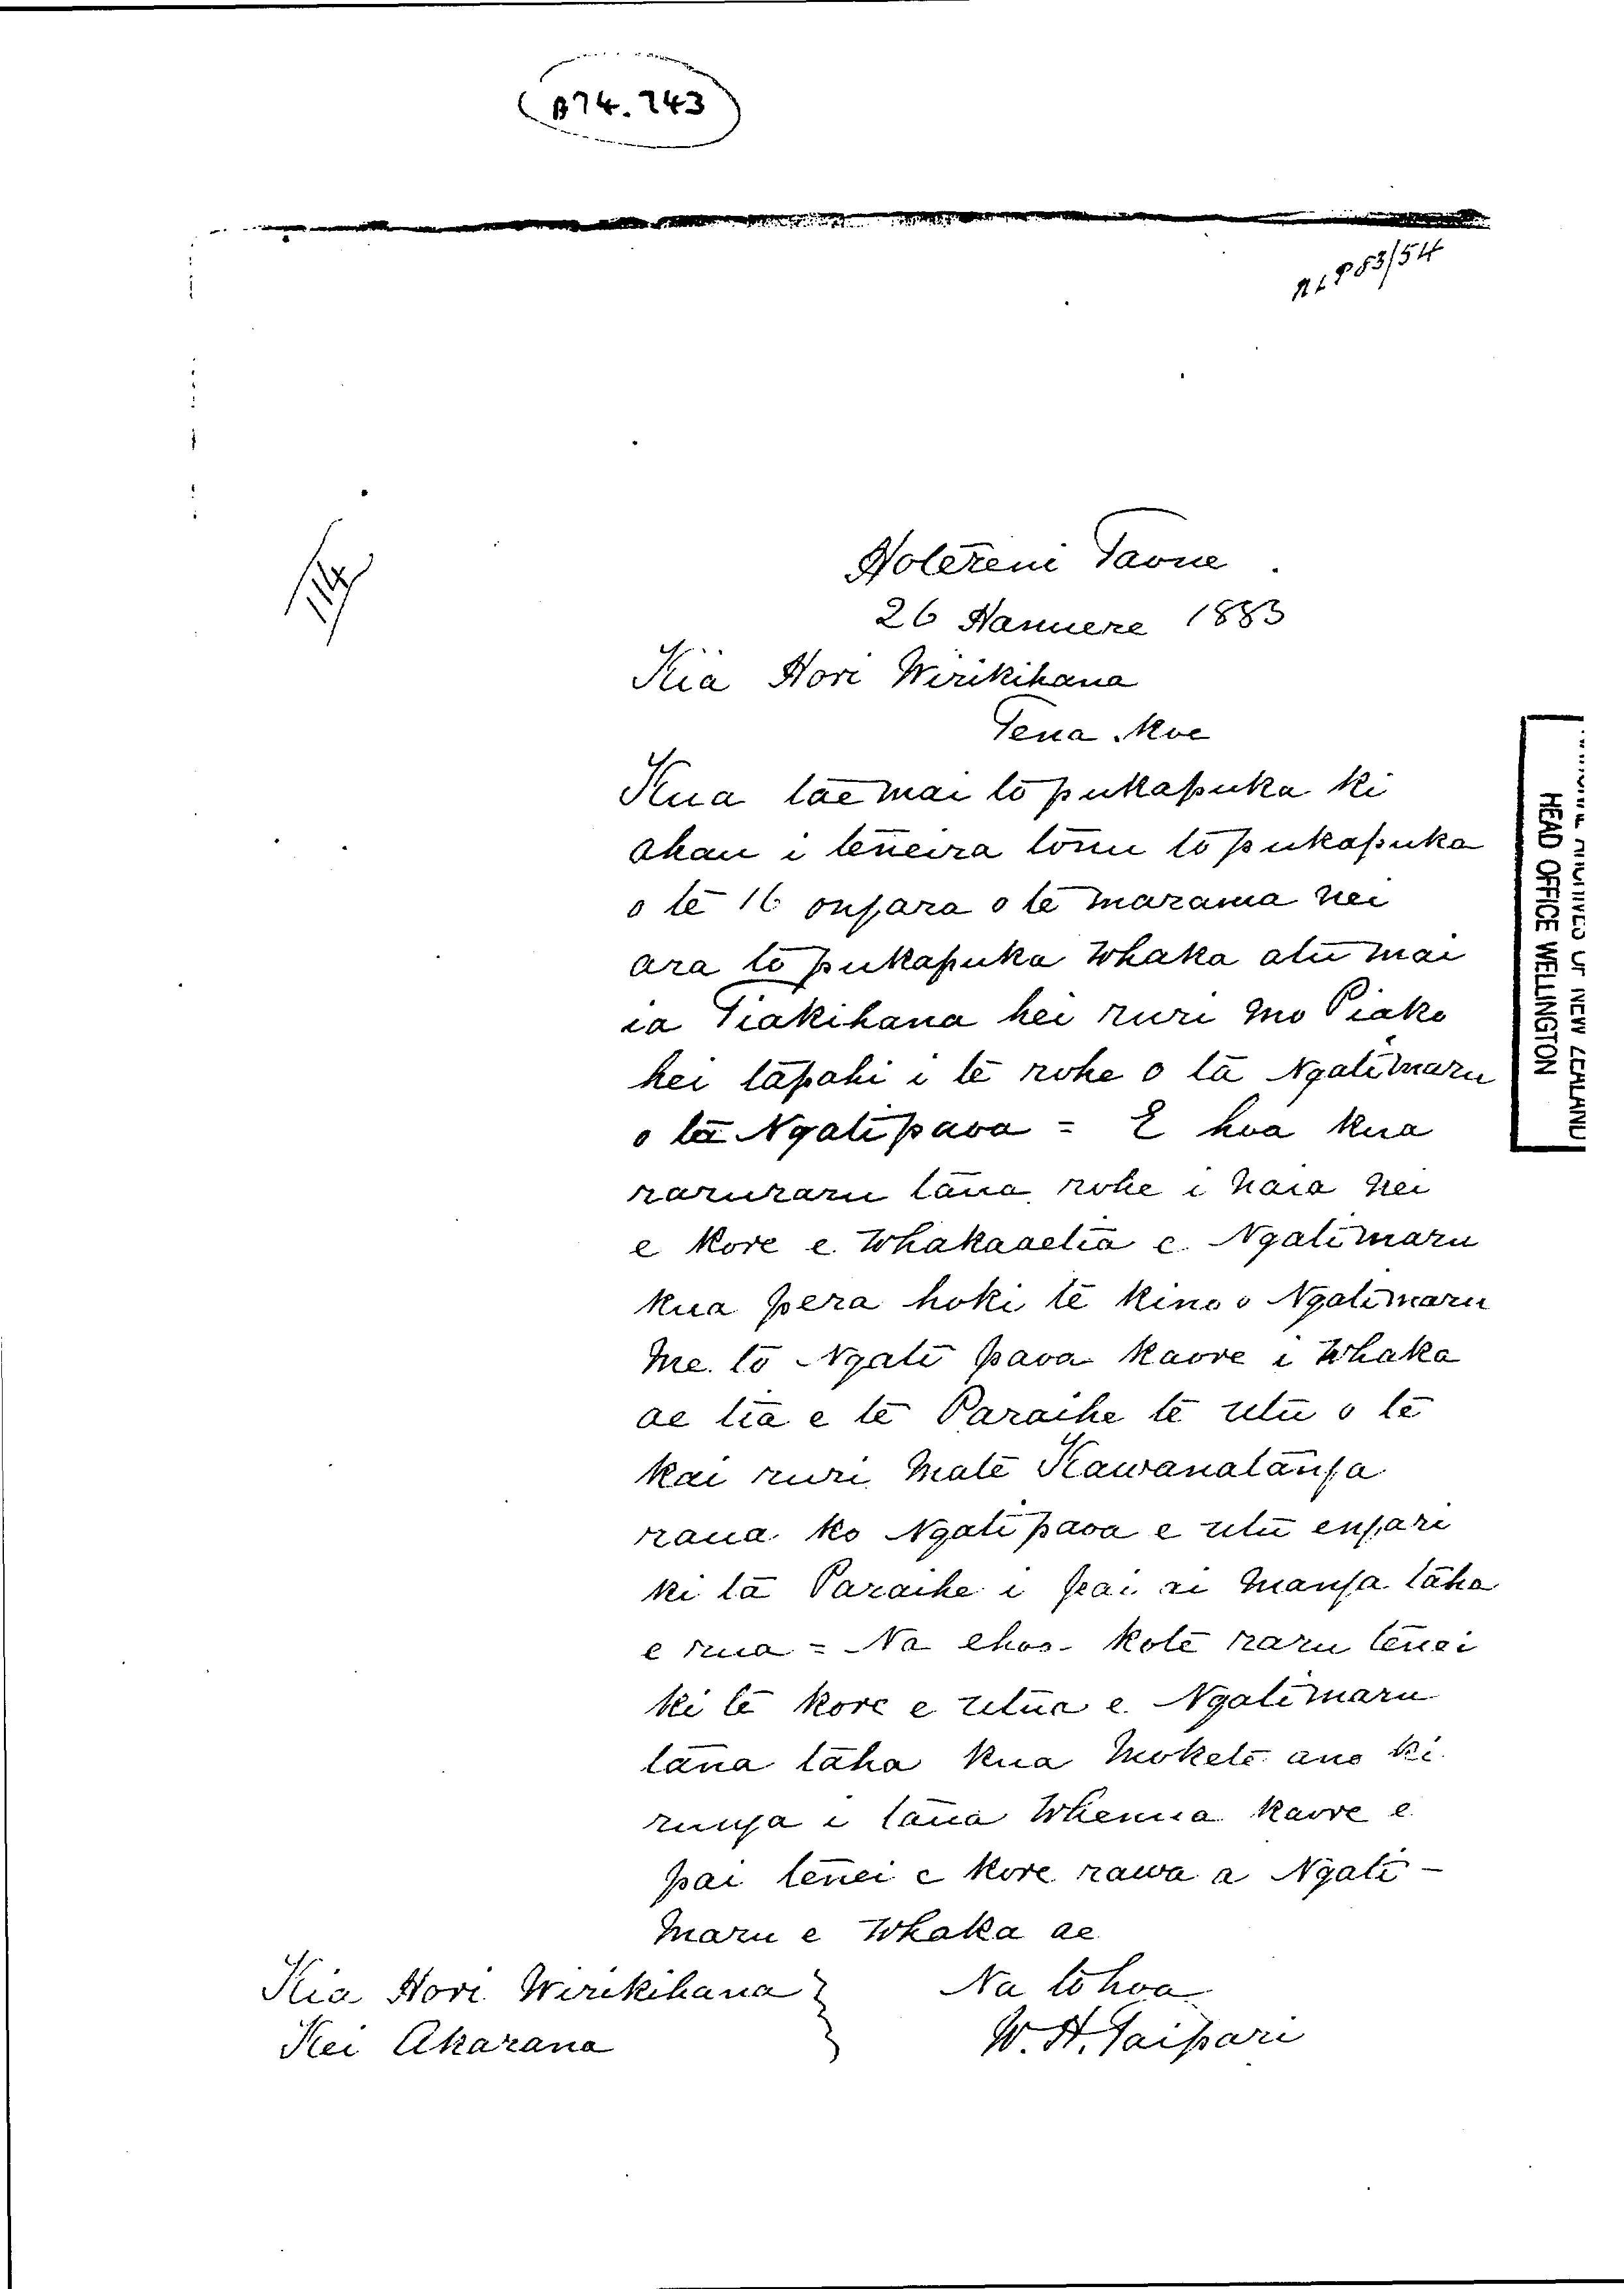 B74.743
NLP 83/54
114
Hotereni Taone
26 Hanuere 1883
Kia Hori Wirikihana
Tena Koe
Kua tae mai to pukapuka ki
ahau i teneira tonu to pukapuka
o te 16 onga ra o te marama nei
ara to pukapuka whaka atu mai
ia Tiakihana hei ruri mo Piako
hei tapahi i te rohe o ta Ngatimaru
o ta Ngatipaoa = E hoa kua
raruraru tana rohe i naia nei
e kore e whakaaetia e Ngatimaru
kua pera hoki te kino o Ngatimaru
me to Ngati paoa kaore i whaka
ae tia e te Paraihe te utu o te
kai ruri mate Kawanatanga
raua ko Ngatipaoa e utu engari
ki ta Paraihe i pai ai manga taha
e rua = Na ehoa kote raru tenei
ki te kore e utua e Ngatimaru
tana taha kua mokete ano ki
runga i tana whenua kaore e
pai tenei e kore rawa a Ngati-
maru e whaka ae
Na to hoa
W. H. Taipari
Kia Hori Wirikihana
Kei Akarana
ARCHIVES OF NEW ZEALAND
HEAD OFFICE WELLINGTON